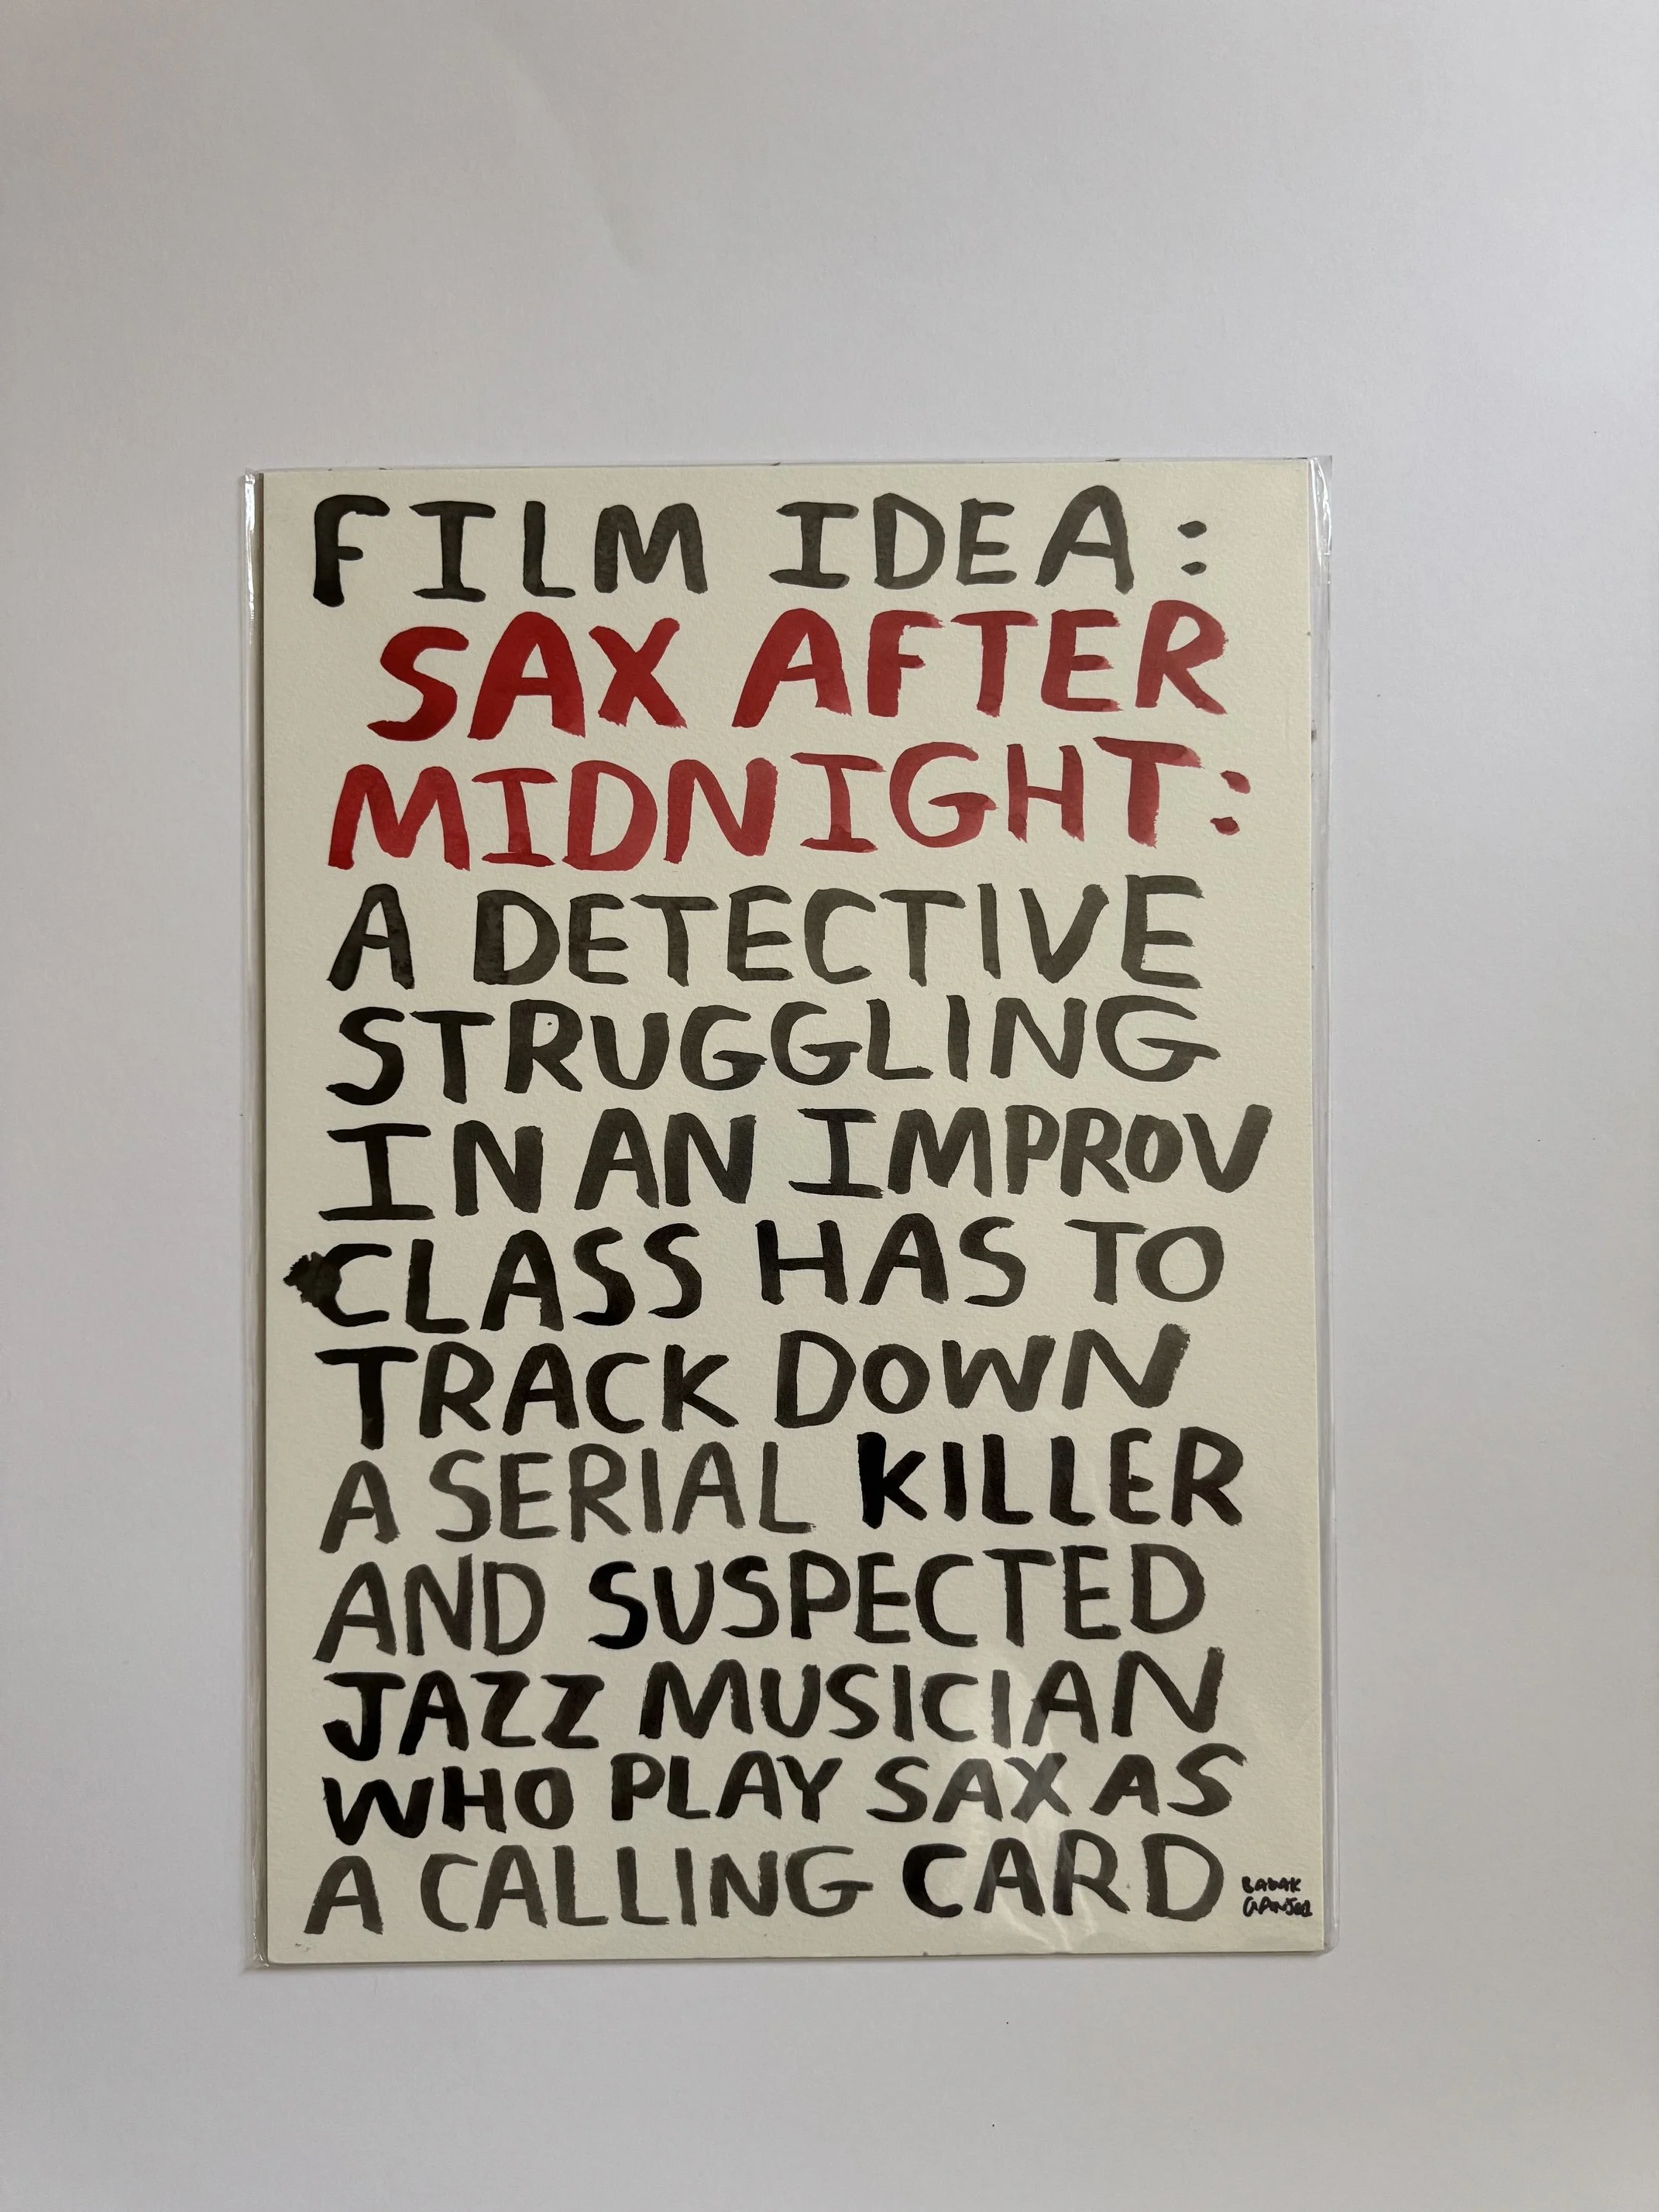 FILM IDEA:
SAX AFTER
MIDNIGHT:
A DETECTIVE
STRUGGLING
IN AN IMPROV
CLASS HAS TO
TRACK DOWN
A SERIAL KILLER
AND SUSPECTED
JAZZ MUSICIAN
WHO PLAY SAX AS
A CALLING CARD
BABAK
GANJEI